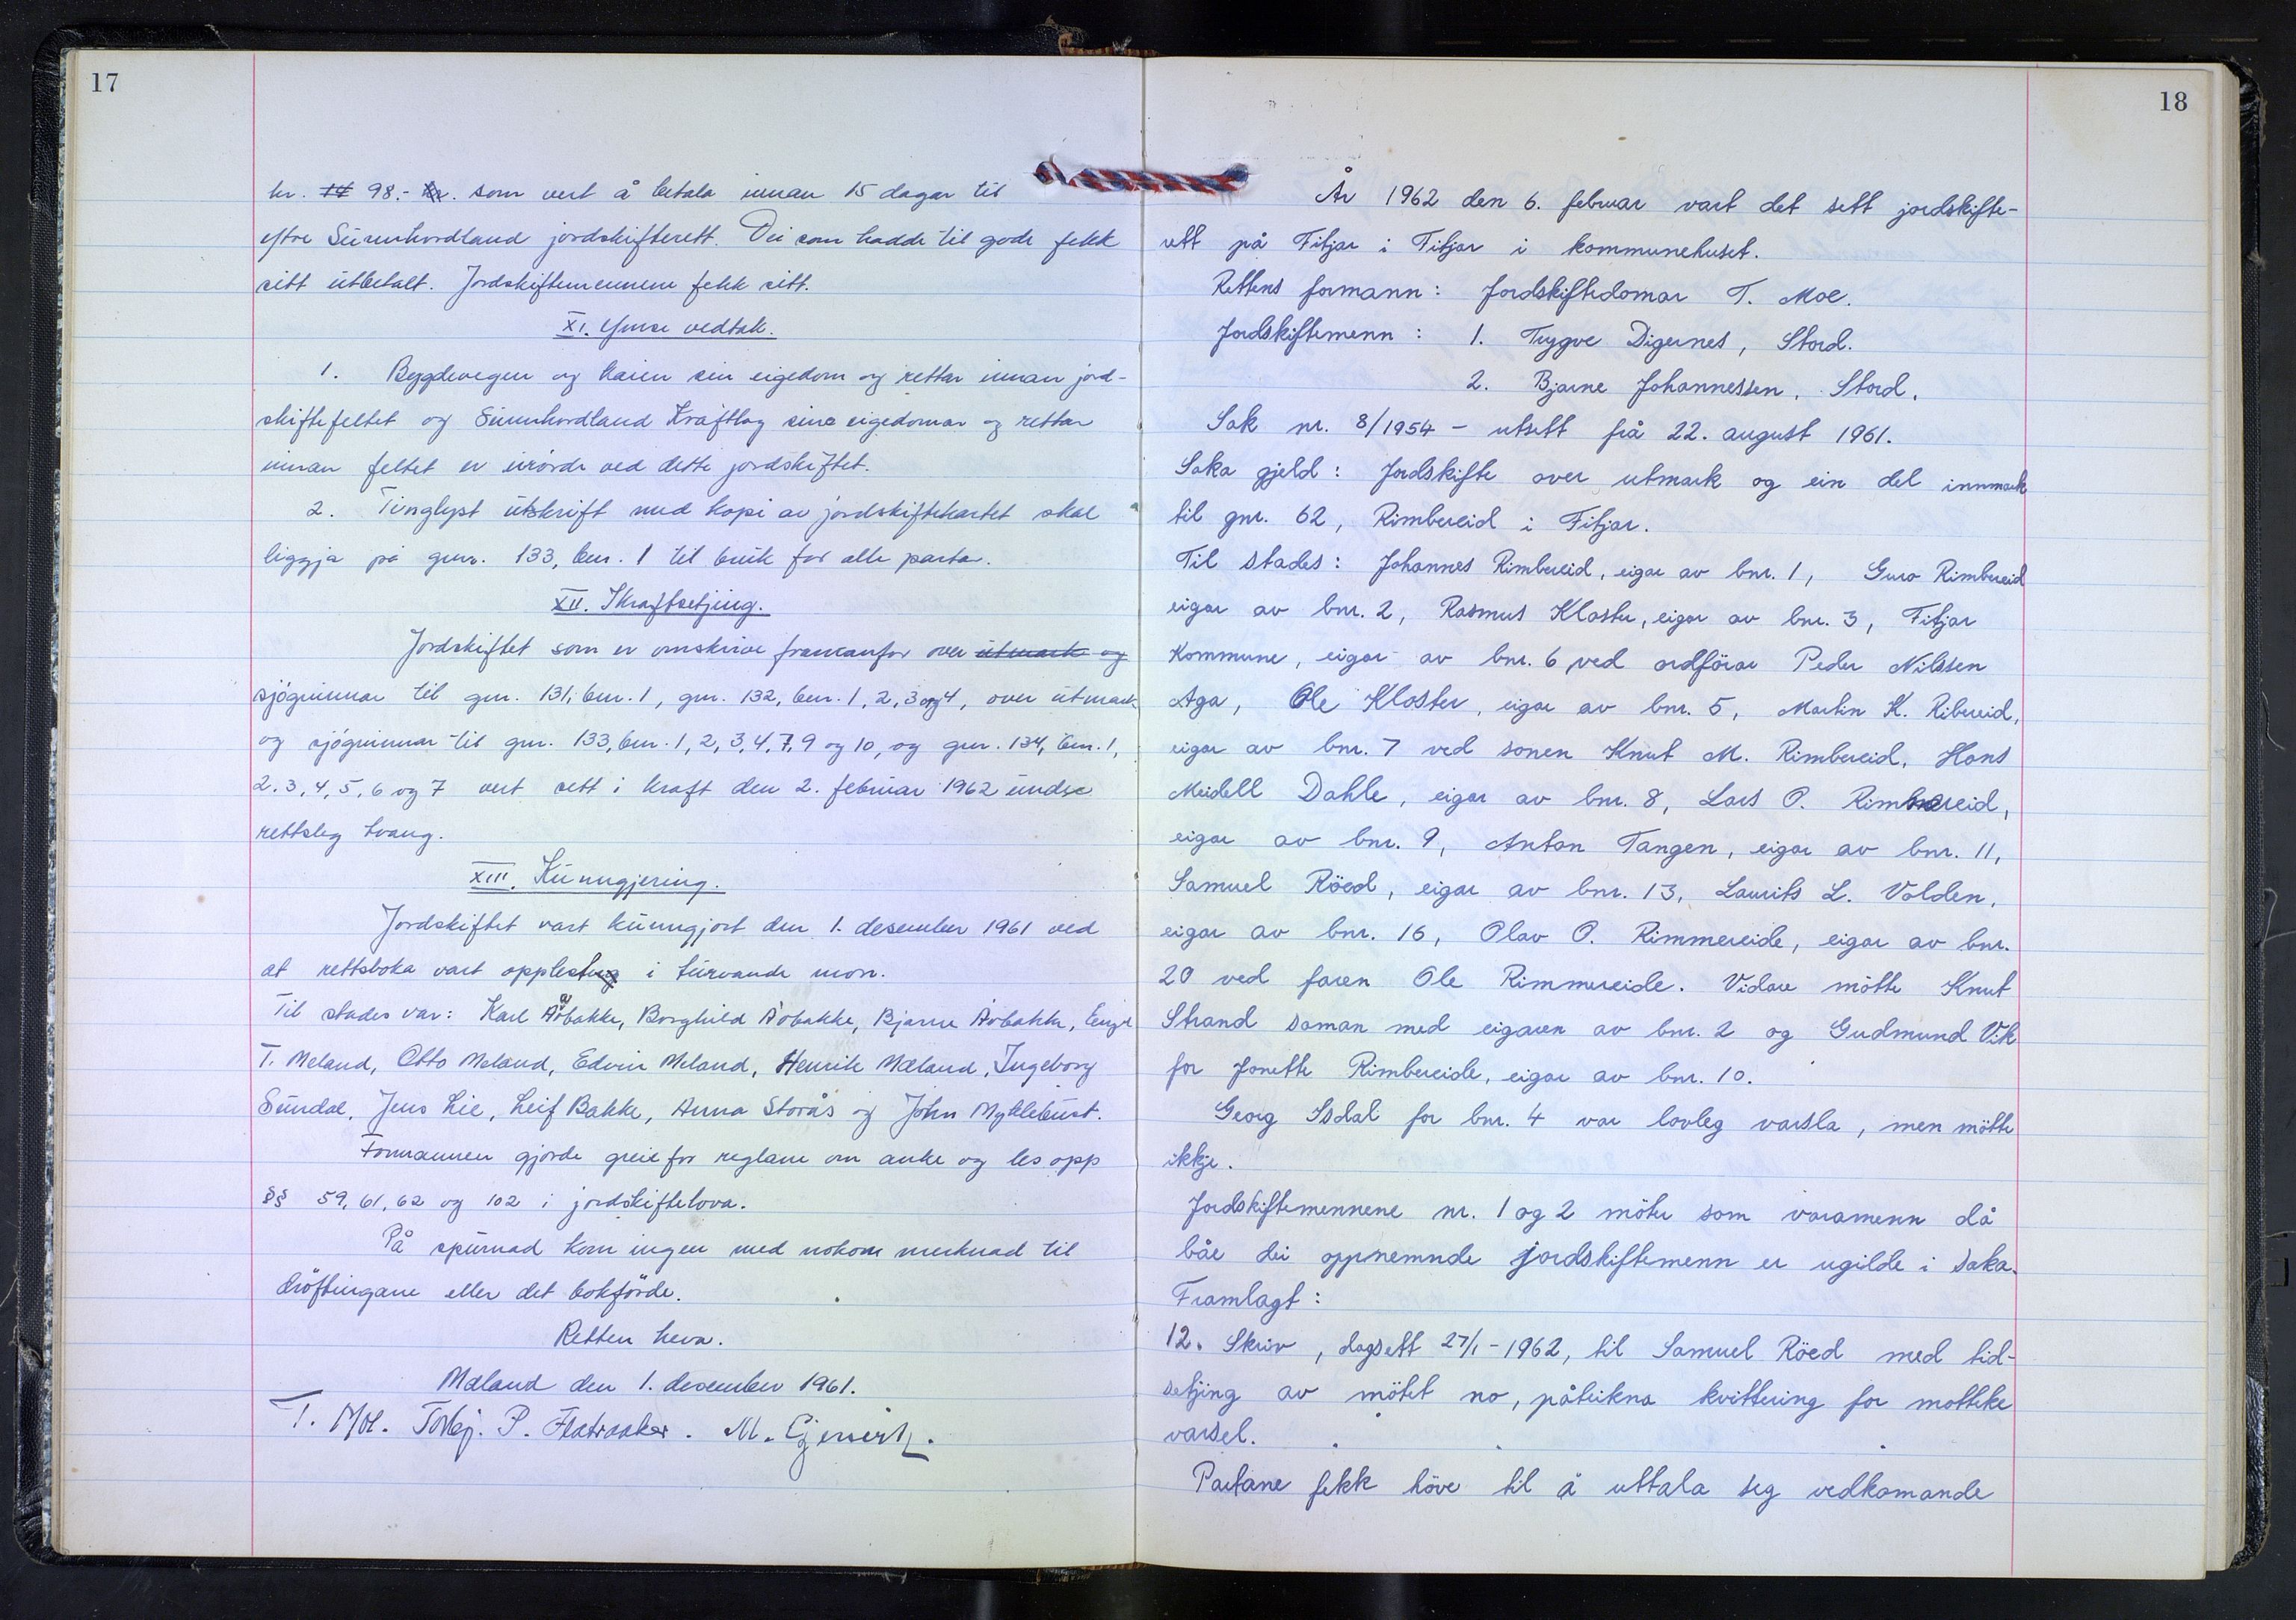 17
kr. 14 98.- kr. som vert å betala innan 15 dagar til
ytre Sunnhordland jordskifterett. Dei som hadde til gode fekk
sitt utbetalt. Jordskiftemennene fekk sitt.
XI. Ymse vedtak.
1. Bygdevegen og kaien sin eigedom og rettar innan jord-
skiftefeltet og Sunnhordland Kraftlag sine eigedomar og rettar
innan feltet er urørde ved dette jordskiftet.
2. Tinglyst utskrift med kopi av jordskiftekartet skal
liggja på gnr. 133, bnr. 1 til bruk for alle partar.
XII. Ikraftsetjing.
Jordskiftet som er omskrive framanfor over utmark og
sjögrunnar til gnr. 131, bnr. 1, gnr. 132, bnr. 1, 2, 3 og 4, over utmark
og sjögrunnar til gnr. 133, bnr. 1, 2, 3, 4, 7, 9 og 10, og gnr. 134, bnr. 1,
2, 3, 4, 5, 6 og 7 vert sett i kraft den 2. februar 1962 under
rettsleg tvang.
XIII. Kunngjering.
Jordskiftet vart kunngjort den 1. desember 1961 ved
at rettsboka vart opplest i turvande mon.
Til stades var: Karl Åbakke, Borghild Åbakke, Bjarne Åbakke,
T. Meland, Otto Meland, Edvin Meland, Henrik Mæland, Ingeborg
Sundal, Jens Lie, Leif Bakke, Anna Storås og John Myklebust.
Formannen gjorde greie for reglane om anke og les opp
§§ 59, 61, 62 og 102 i jordskiftelova.
På spurnad kom ingen med nokon merknad til
dröftingane eller det bokförde.
Retten heva.
Mæland den 1. desember 1961.
T. Moe. Torbj. P. Flatraaker. M.
18
År 1962 den 6. februar vart det sett jordskifte-
rett på Fitjar i Fitjar i kommunehuset.
Rettens formann: Jordskiftedomar T. Moe.
Jordskiftemenn: 1. Trygve Digernes, Stord.
2. Bjarne Johannessen, Stord.
Sak nr. 8/1954 - utsett frå 22. august 1961.
Saka gjeld: Jordskifte over utmark og ein del innmark
til gnr. 62, Rimbereid i Fitjar.
Til stades: Johannes Rimbereid, eigar av bnr. 1, Guro Rimbereid
eigar av bnr. 2, Rasmus Kloster, eigar av bnr. 3, Fitjar
Kommune, eigar av bnr. 6 ved ordförar Peder Nilssen
Aga, Ole Kloster, eigar av bnr. 5, Martin K. Ribereid,
eigar av bnr. 7 ved sonen Knut M. Rimbereid, Hans
Meidell Dahle, eigar av bnr. 8, Lars O. Rimbereid,
eigar av bnr. 9, Anton Tangen, eigar av bnr. 11,
Samuel Röed, eigar av bnr. 13, Laurits L. Volden,
eigar av bnr. 16, Olav O. Rimmereide, eigar av bnr.
20 ved faren Ole Rimmereide. Vidare mötte Knut
Strand saman med eigaren av bnr. 2 og Gudmund Vik
for Jonette Rimbereide, eigar av bnr. 10.
Georg Isdal for bnr. 4 var lovleg varsla, men mötte
ikkje.
Jordskiftemennene nr. 1 og 2 möter som varamenn då
båe dei oppnemnde jordskiftemenn er ugilde i saka.
Framlagt:
12. Skriv, dagsett 27/1-1962, til Samuel Röed med tid-
setjing av mötet no, påteikna kvittering for motteke
varsel.
Partane fekk höve til å uttala seg vedkomande